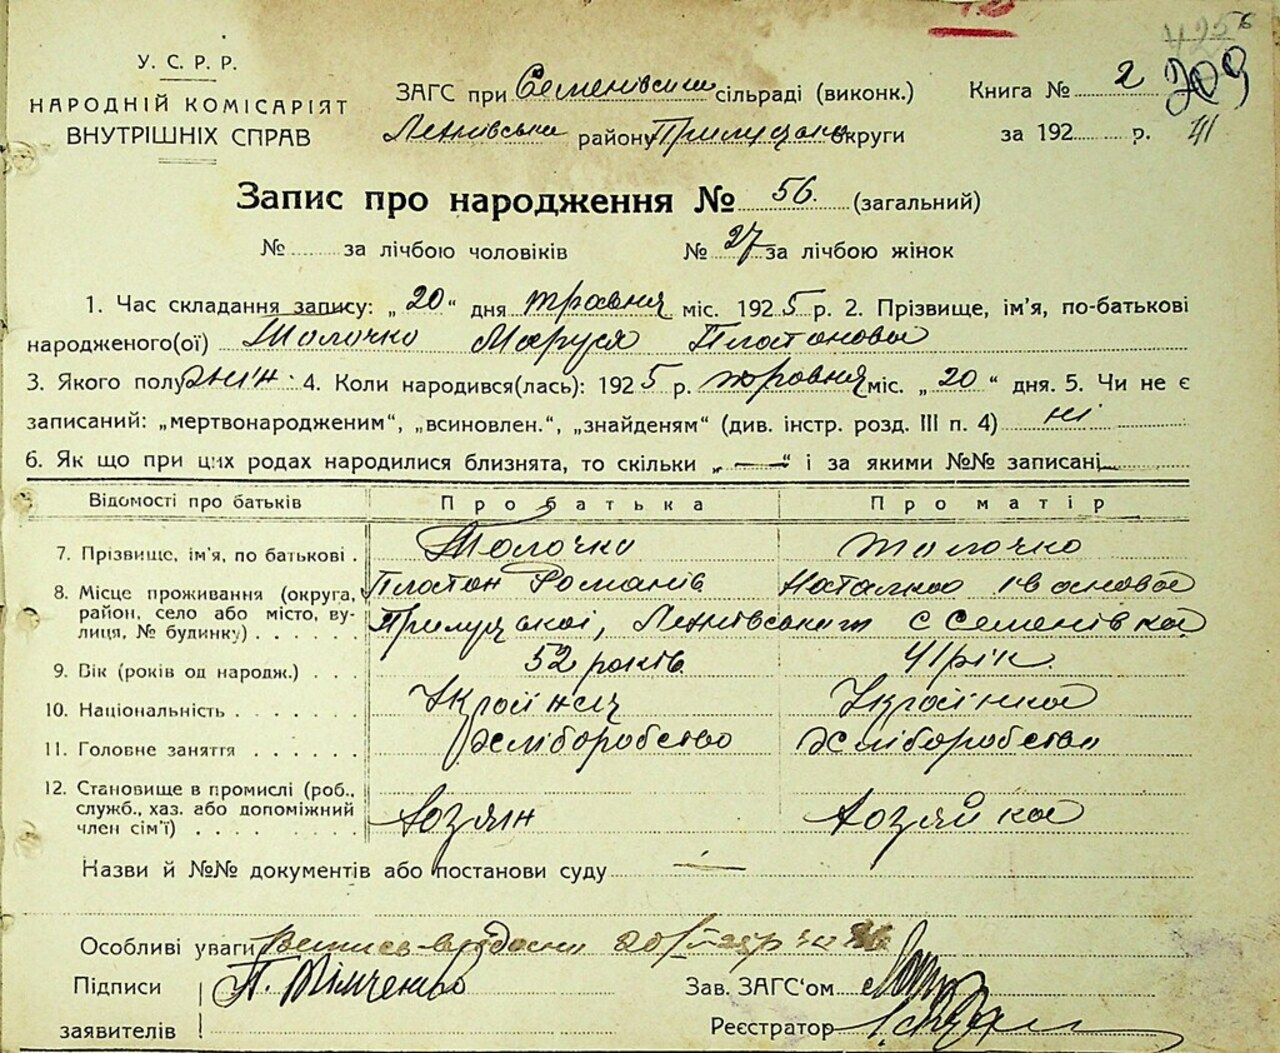 У. С. Р. Р.
НАРОДНІЙ КОМІСАРІЯТ
ВНУТРІШНІХ СПРАВ
ЗАГС при Семенівськи сільраді (виконк.)
Книга № 2
309
41
Летківська району Прилуцька округи
за 192 р.
Запис про народження № 56. (загальний)
№ за лічбою чоловіків № 27 за лічбою жінок
1. Час складання запису: „20“ дня травня міс. 1925 р. 2. Прізвище, ім'я, по-батькові
народженого(ої) Толочко Маруся Платонова
3. Якого полу жін. 4. Коли народився(лась): 1925 р. травня міс. „20“ дня. 5. Чи не є
записаний: „мертвонародженим“, „всиновлен.“, „знайденям“ (див. інстр. розд. III п. 4) ні
6. Як що при цих родах народилися близнята, то скільки „—“ і за якими №№ записані
Відомості про батьків Про батька Про матір
7. Прізвище, ім'я, по батькові . Толочко Толочко
Платон Романів Наталка Іванова
8. Місце проживання (округа,
район, село або місто, ву-
лиця, № будинку) . . . . . Прилуцької, с Семенівка
9. Вік (років од народж.) . . . 52 років. 41 рік.
10. Національність . . . . . . . Українец Українка
11. Головне заняття . . . . . . Хліборобство Хліборобство
12. Становище в промислі (роб.,
служб., хаз. або допоміжний
член сім'ї) . . . . . . . Хозяін Хозяйка
Назви й №№ документів або постанови суду —
Особливі уваги Витись видани
Підписи П. Вінченко Зав. ЗАГС'ом
заявителів Реєстратор